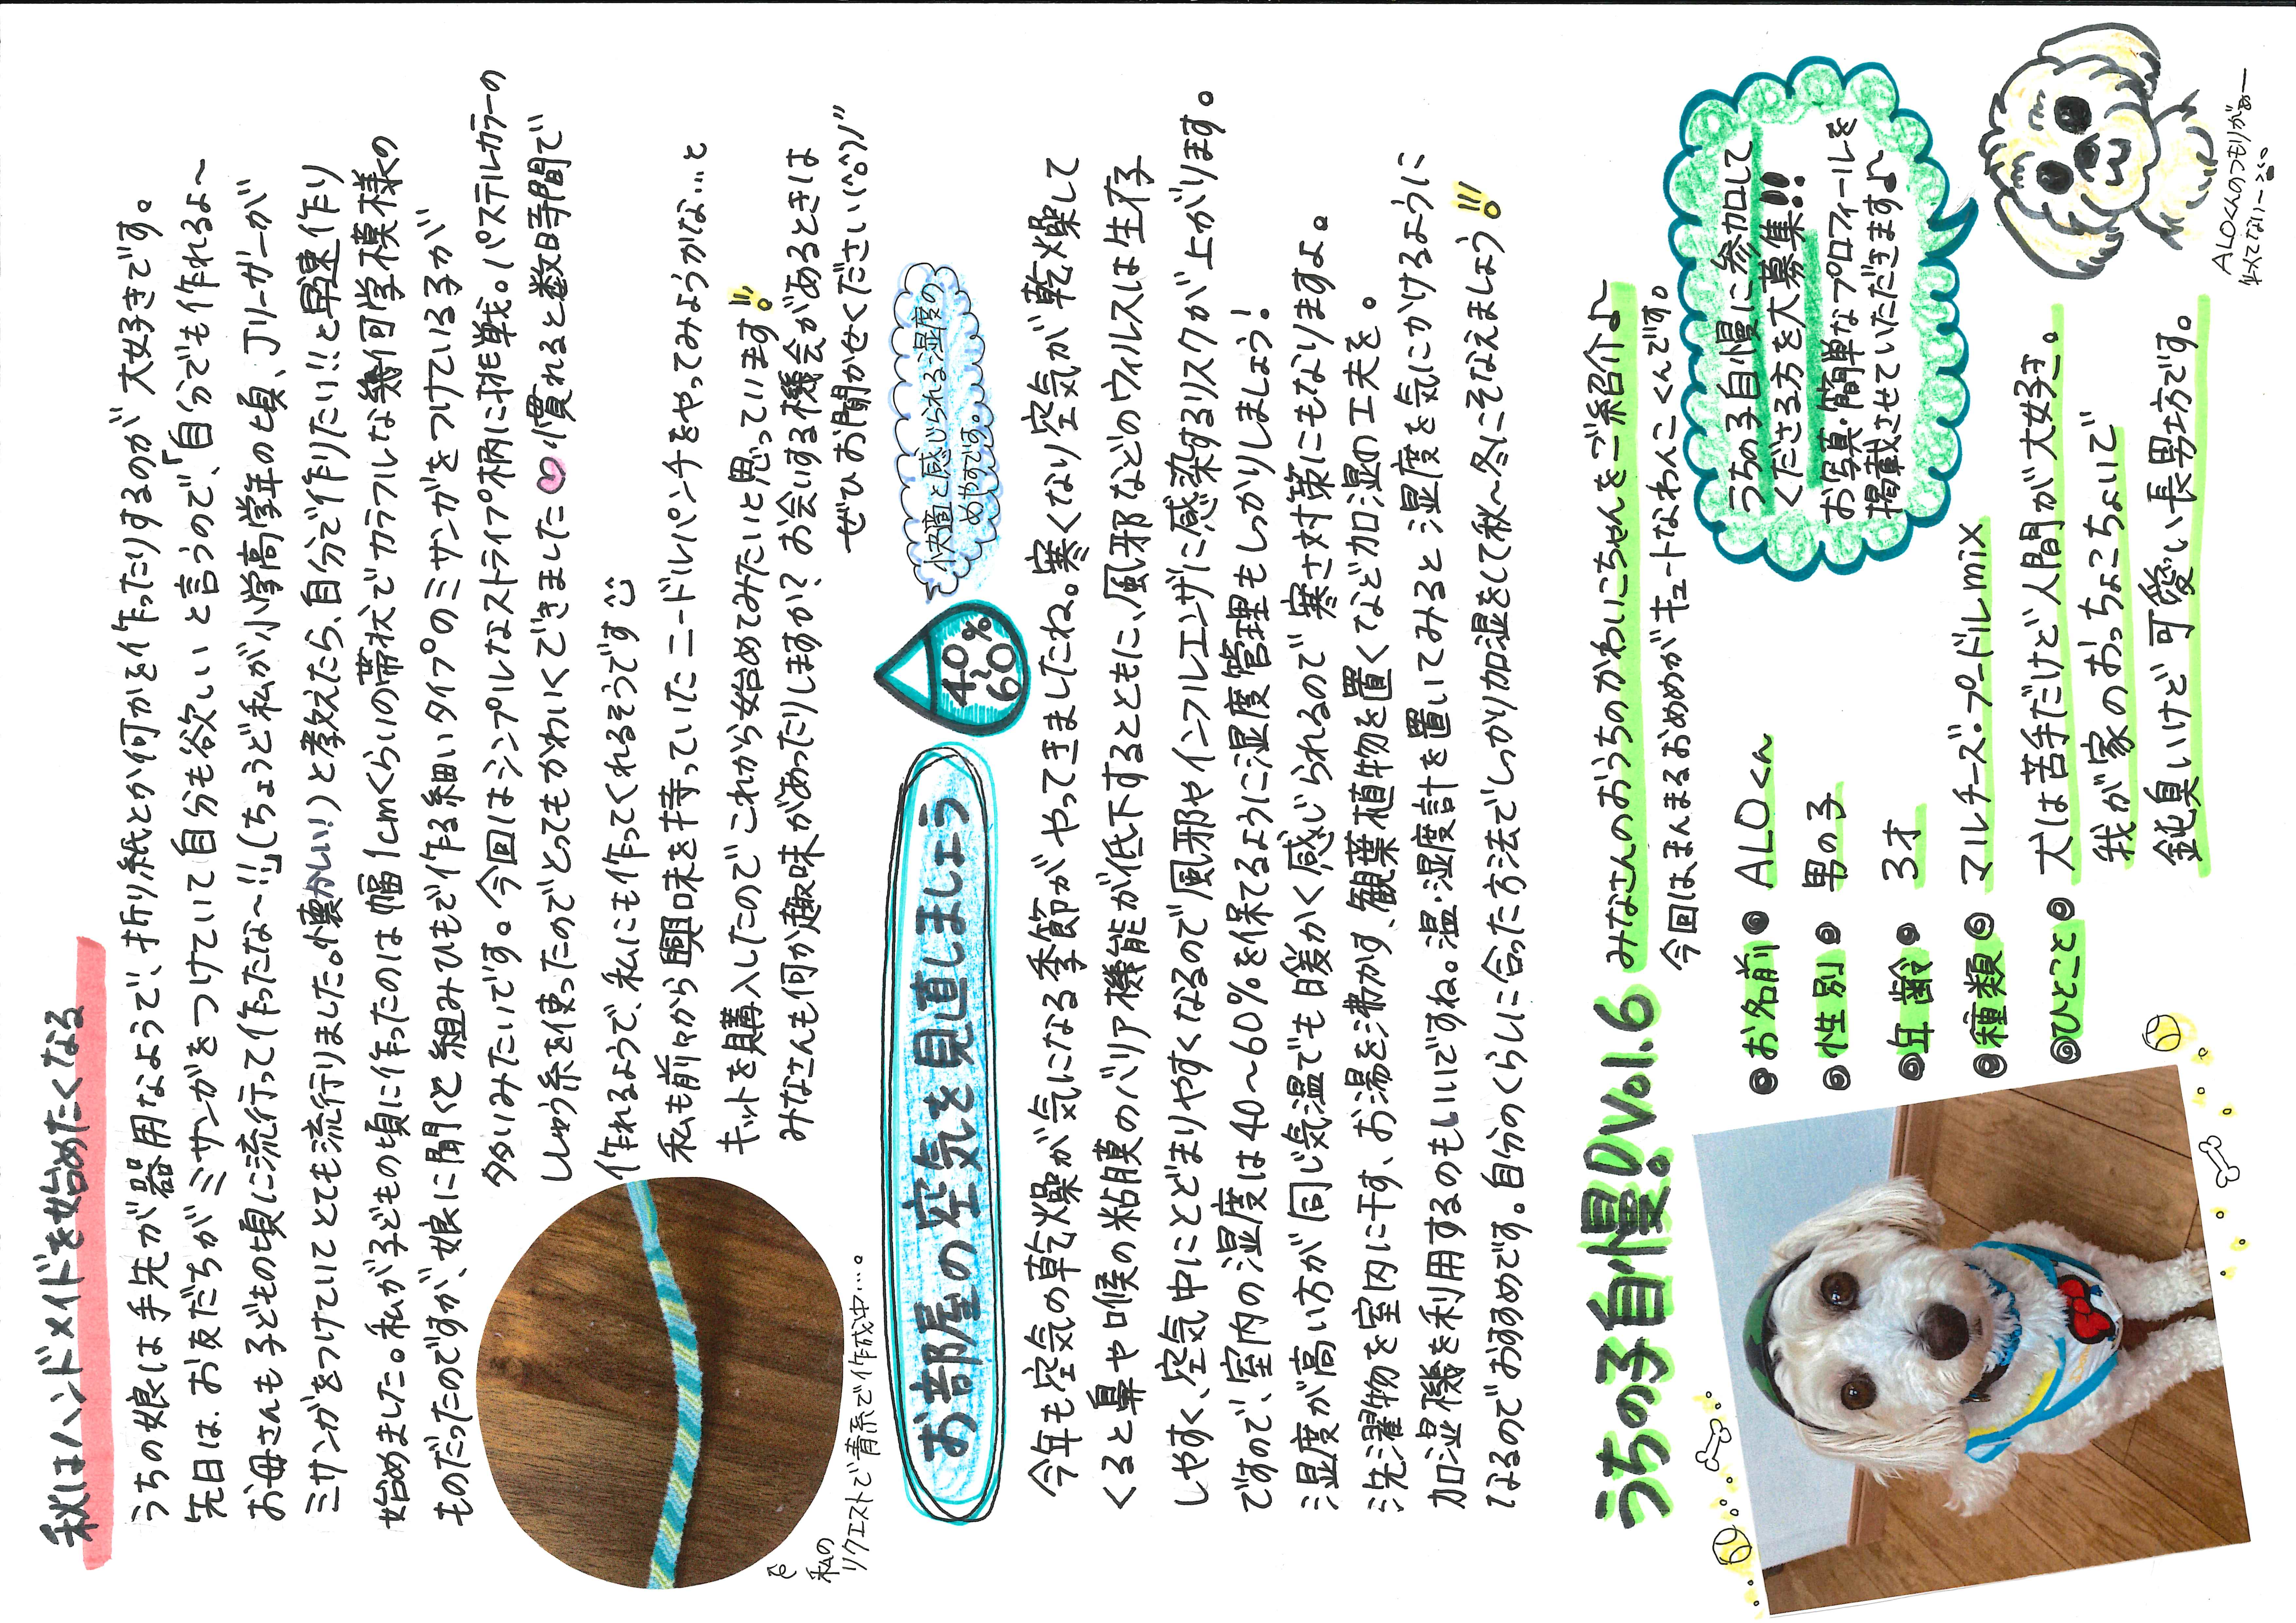 秋はハンドメイドを始めたくなる
うちの娘は手先が器用なようで、折り紙とか何かを作ったりするのが大好きです。
先日は、お友だちがミサンガをつけていて自分も欲しいと言うので、「自分でも作れるよ～
お母さんも子どもの頃に流行って作ったな～!!」(ちょうど私が小学高学年の頃、Jリーガーが
ミサンガをつけていてとても流行りました。懐かしい!)と教えたら、自分で作りたい!!と早速作り
始めました。私が子どもの頃に作ったのは幅1cmくらいの帯状でカラフルな幾何学模様の
ものだったのですが、娘に聞くと組みひもで作る細いタイプのミサンガをつけている子が
多いみたいです。今回はシンプルなストライプ柄に挑戦。パステルカラーの
ししゅう糸を使ったのでとってもかわいくできました♡慣れると数時間で
作れるようで、私にも作ってくれるそうです
私も前々から興味を持っていたニードルパンチをやってみようかな…と
キットを購入したのでこれから始めてみたいと思っています!!
みなさんも何か趣味があったりしますか？お会いする機会があるときは
ぜひお聞かせください(^o^)ﾉ"
私の
リクエストで青系で作成中…。
お部屋の空気を見直しましょう
40
～
60%
快適と感じられる湿度の
めやすです。
今年も空気の乾燥が気になる季節がやってきましたね。寒くなり空気が乾燥して
くると鼻や喉の粘膜のバリア機能が低下するとともに、風邪などのウィルスは生存
しやすく、空気中にとどまりやすくなるので風邪やインフルエンザに感染するリスクが上がります。
ですので、室内の湿度は40～60%を保てるように湿度管理もしっかりしましょう!
湿度が高い方が同じ気温でも暖かく感じられるので寒さ対策にもなりますよ。
洗濯物を室内に干す、お湯を沸かす、観葉植物を置くなど加湿の工夫を。
加湿機を利用するのもいいですね。温・湿度計を置いてみると湿度を気にかけるように
なるのでおすすめです。自分のくらしに合った方法でしっかり加湿をして秋～冬にそなえましょう!!!
うちの子自慢♪Vol.6 みなさんのおうちのかわいこちゃんをご紹介♪
今回は、まんまるおめめがキュートなわんこくんです。
◎お名前◎ ALOくん
◎性別◎ 男の子
◎年齢◎ 3才
◎種類◎ マルチーズ・プードルmix
◎ひとこと◎ 犬は苦手だけど人間が大好き。
我が家のおっちょこちょいで
鈍臭いけど可愛い長男坊です。
うちの子自慢に参加して
くださる方を大募集!!
お写真・簡単なプロフィールを
掲載させていただきます♪
ALOくんのつもりがぁー
似てないー